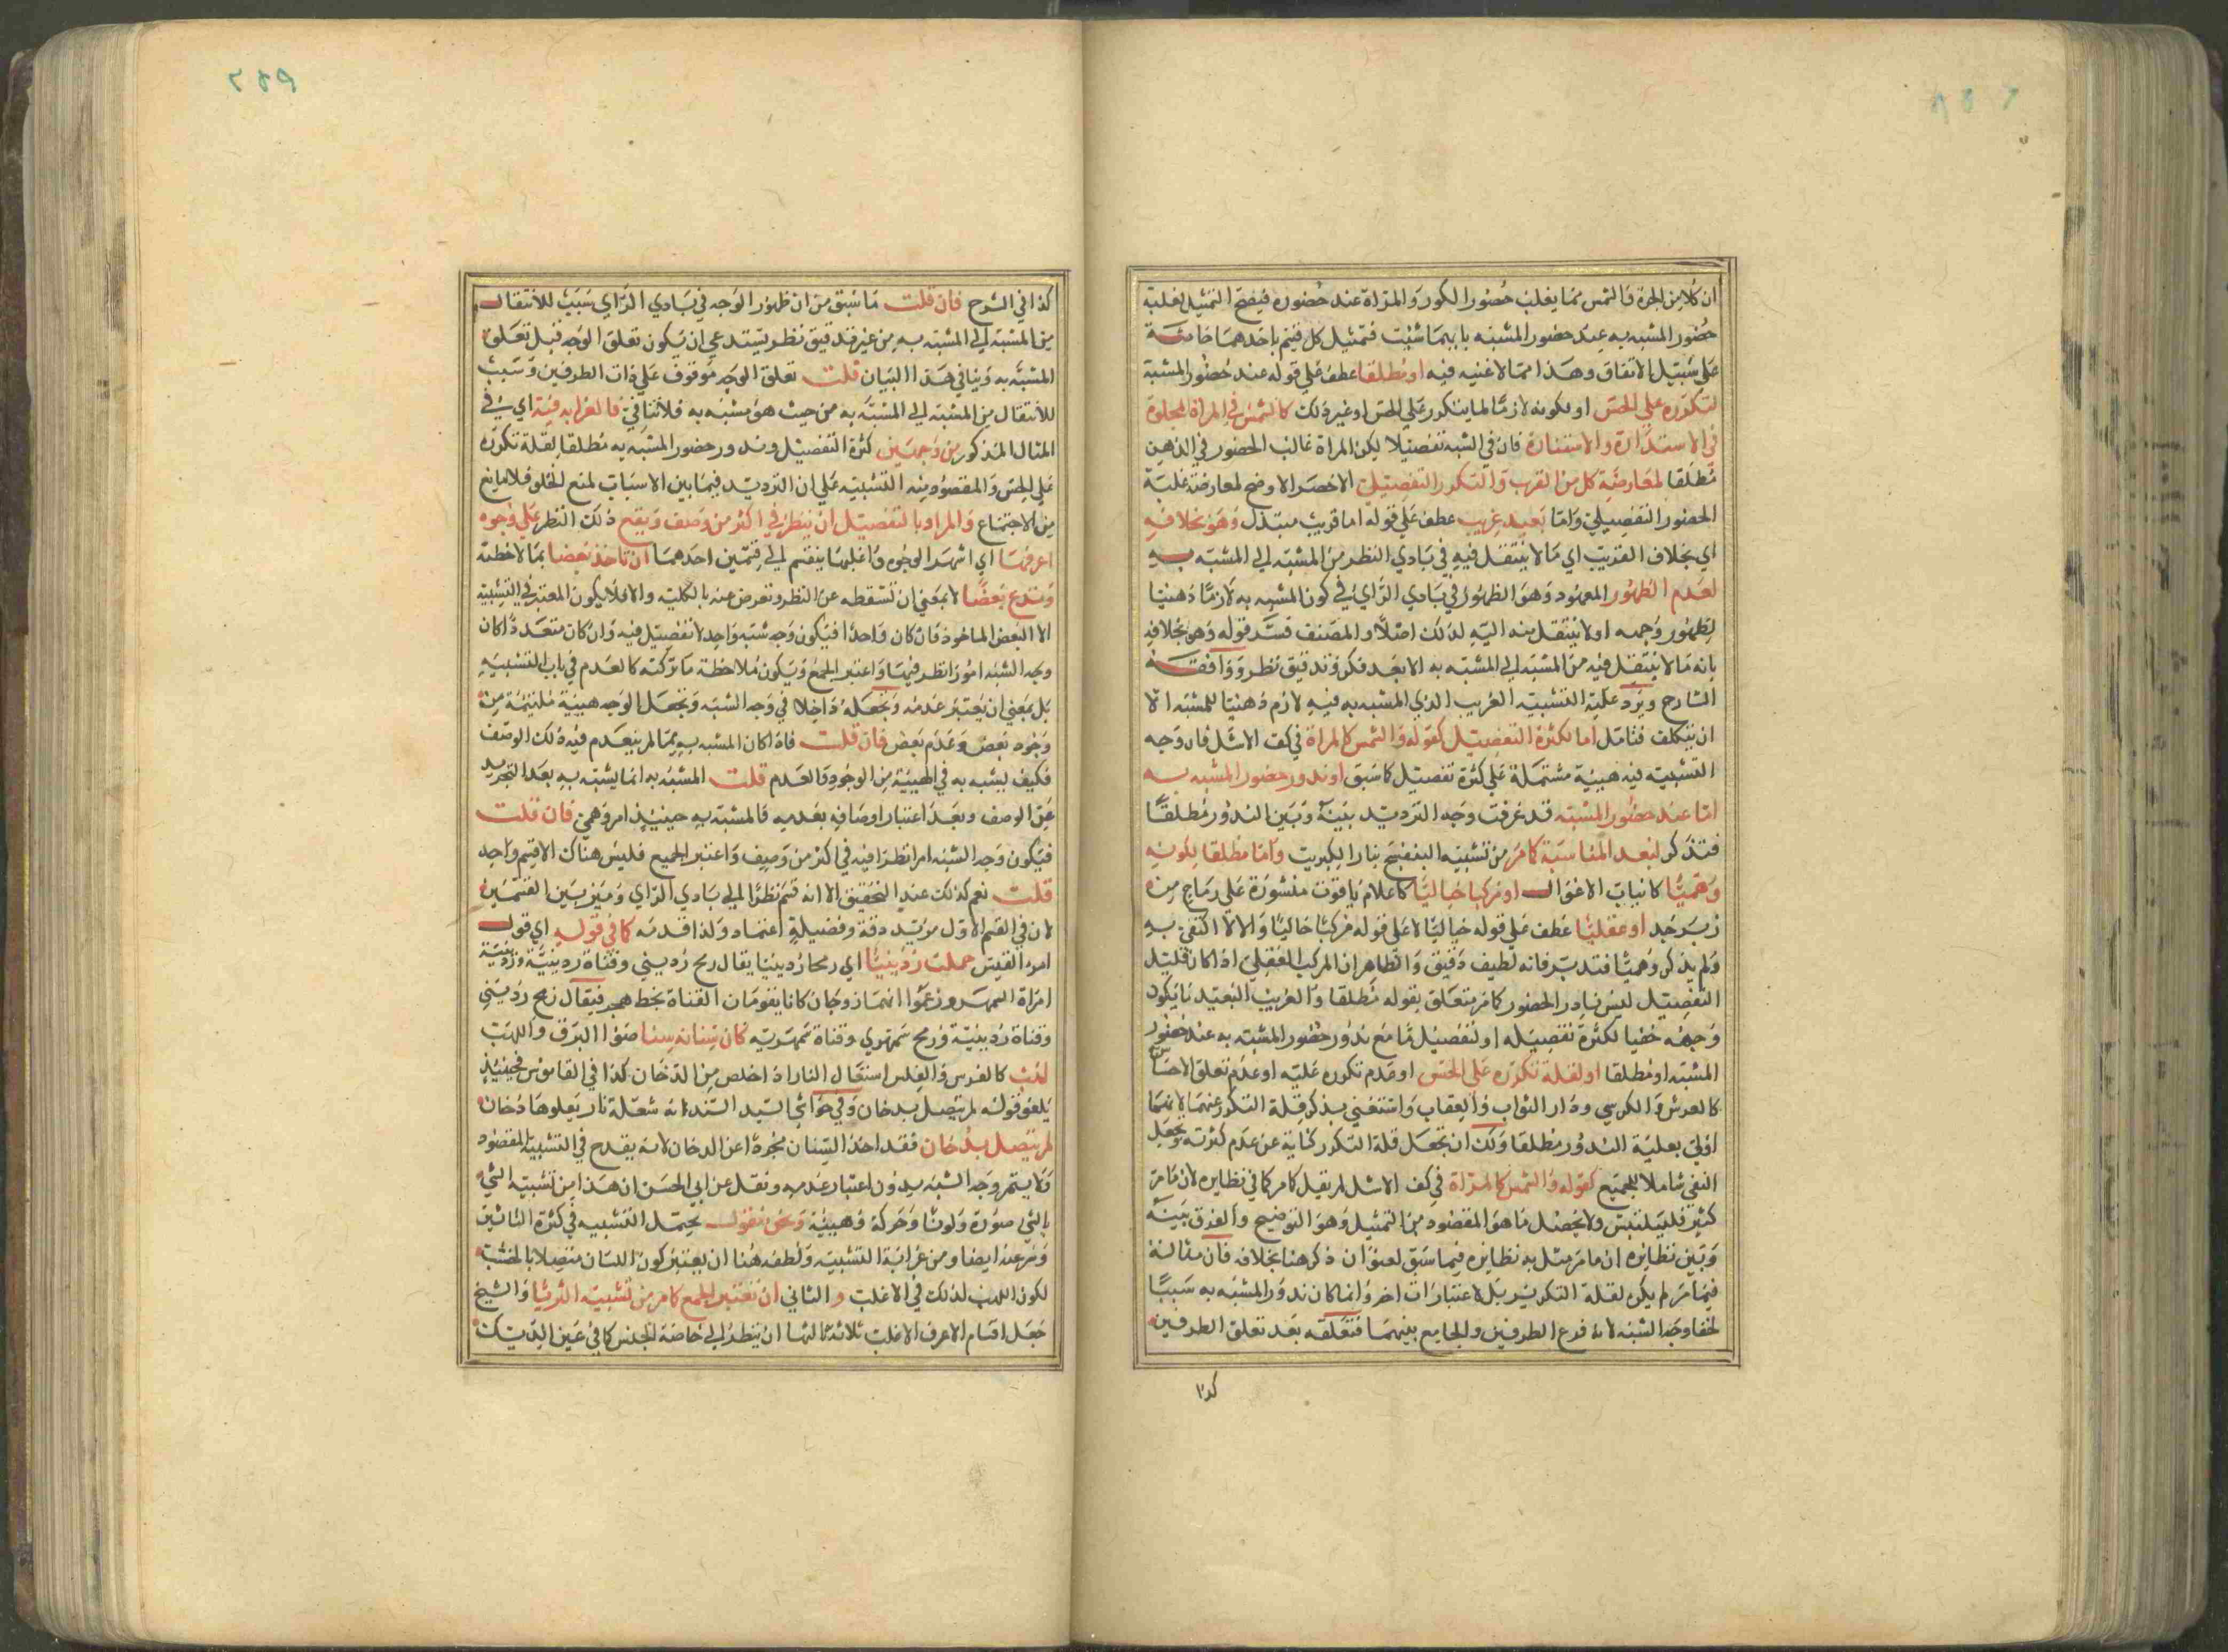 ان كلا من الجرة والشمس مما يغلب حضور الكور والمراة عند حضوره فيصح التمثيل لغلبة
حضور المشبه به عند حضور المشبه بايهما شئت فتمثيل كل قسم باحدهما خاصة
على سبيل الاتفاق وهذا مما لا غنيه فيه او مطلقا عطف على قوله عند حضور المشبه
لتكرره على الحس او لكونه لازما لما يتكرر على الحس او غير ذلك كالشمس في المراة المجلوة
في الاستدارة والاستنارة فان في الشبه تفصيلا لكن المراة غالب الحضور في الذهن
مطلقا لمعارضة كل من القرب والتكرر التفصيل الاخصر الاوضح لمعارضة غلبة
الحضور التفصيل واما بعيد غريب عطف على قوله اما قريب مبتذل وهو بخلافه
اي بخلاف القريب اي ما لا ينتقل فيه في بادي النظر من المشبه الى المشبه به
لعدم الظهور المعهود وهو الظهور في بادي الراي في كون المشبه به لازما ذهنيا
لظهور وجهه او لا ينتقل منه اليه لذلك اصلا والمصنف فسر قوله وهو بخلافه
بانه ما لا ينتقل فيه من المشبه الى المشبه به الا بعد فكر وتدقيق نظر ووافقه
الشارح ويرد عليه التشبيه الغريب الذي المشبه به فيه لازم ذهنيا للمشبه الا
ان يتكلف فتامل اما لكثرة التفصيل كقوله والشمس كالمراة في كف الاشل فان وجه
التشبيه فيه هيئة مشتملة على كثرة تفصيل كما سبق او ندور حضور المشبه به
اما عند حضور المشبه قد عرفت وجه الترديد بينه وبين الندور مطلقا
فتذكر لبعد المناسبة كما مر من تشبيه البنفسج بنار الكبريت واما مطلقا لكونه
وهميا كانياب الاغوال او مركبا خياليا كاعلام ياقوت منشورة على رماح من
زبرجد او عقليا عطف على قوله خياليا لا على قوله مركبا خياليا والا لاكتفى به
ولم يذكر وهميا فتدبر فانه لطيف دقيق والظاهر ان المركب العقلي اذا كان قليل
التفصيل ليس نادر الحضور كما مر متعلق بقوله مطلقا والغريب البعيد ما يكون
وجهه خفيا لكثرة تفصيله او لتفصيل ما مع ندور حضور المشبه به عند حضور
المشبه او مطلقا او لقلة تكرره على الحس او عدم تكرره عليه او عدم تعلق الاحساس
كالعرش والكرسي ودار الثواب والعقاب واستغنى بذكر قلة التكرر عنهما لانهما
اولى بعلية الندور مطلقا ولك ان تجعل قلة التكرر كناية عن عدم كثرته وتجعل
النفي شاملا للجميع كقوله والشمس كالمراة في كف الاشل لم يقل كما مر كما في نظايره لان ما مر
كثير فليلتبس ولا يحصل ما هو المقصود من التمثيل وهو التوضيح والفرق بينه
وبين نظايره ان ما مر مثل به نظايره فيما سبق لعنوان ذكر هنا بخلافه فان مثاله
فيما مر لم يكن لقلة التكرير بل لاعتبارات اخر وانما كان ندور المشبه به سببا
لخفا وجه الشبه لانه فرع الطرفين والجامع بينهما فتعلقه بعد تعلق الطرفين
كذا
٢٤٩
كذا في الشرح فان قلت ما سبق من ان ظهور الوجه في بادي الراي سبب للانتقال
من المشبه الى المشبه به من غير تدقيق نظر يستدعي ان يكون تعلق الوجه قبل تعلق
المشبه به وينافي هذا البيان قلت تعلق الوجه موقوف على ذات الطرفين وسبب
للانتقال من المشبه الى المشبه به من حيث هو مشبه به فلا تنافي فالغرابة فيه اي في
المثال المذكور من وجهين كثرة التفصيل وندور حضور المشبه به مطلقا لقلة تكرره
على الحس والمقصود منه التشبيه على ان الترديد فيما بين الاسباب لمنع الخلو فلا مانع
من الاجتماع والمراد بالتفصيل ان ينظر في اكثر من وصف ويقع ذلك النظر على وجوه
اعرفها اي اشهر الوجوه واغلبها ينقسم الى قسمين احدهما ان تاخذ بعضا بملاحظته
وتدع بعضا لا بمعنى ان تسقطه عن النظر وتعرض عنه بالكلية والا فلا يكون المعتبر في التشبيه
الا البعض الماخوذ فان كان واحدا فيكون وجه شبه واحد لا تفصيل فيه وان كان متعددا كان
وجه الشبه امورا نظر فيها واعتبر الجمع ويكون ملاحظة ما تركته كالعدم في باب التشبيه
بل بمعنى ان يعتبر عدمه وتجعله داخلا في وجه الشبه وتجعل الوجه هيئة ملتئمة من
وجود بعض وعدم بعض فان قلت فاذا كان المشبه به مما لم ينعدم فيه ذلك الوصف
فكيف يشبه به في الهيئة من الوجود والعدم قلت المشبه به انما يشبه به بعد التجريد
عن الوصف وبعد اعتبار اوصافه بعدمه فالمشبه به حينئذ امر وهمي فان قلت
فيكون وجه الشبه امرا نظرا فيه في اكثر من وصف واعتبر الجميع فليس هناك الا قسم واحد
قلت نعم كذلك عند التحقيق الا انه قسم نظرا الى بادي الراي وميز بين القسمين
لان في القسم الاول مزيد دقة وفضيلة اعتماد ولذا قدمه كما في قوله اي قول
امرء القيس حملت ردينيا اي رمحا ردينيا يقال رمح رديني وقناة ردينية وردينة
امراة السمهر وزعموا انهما زوجان كانا يقومان القناة بخط هجر فيقال رمح رديني
وقناة ردينية ورمح سمهري وقناة سمهرية كان سنانه سنا ضوء البرق واللهب
لهب كالفرس والفلس اشتعال النار اذ اخلص من الدخان كذا في القاموس فحينئذ
يلغو قوله لم يتصل بدخان وفي حواشي السيد السند انه شعلة نار يعلوها دخان
لم يتصل بدخان فقد اخذ السنان مجردا عن الدخان لانه يقدح في التشبيه المقصود
ولا يتم وجه الشبه بدون اعتبار عدمه ونقل عن ابي الحسن ان هذا من تشبيه الشي
بالشي صورة ولونا وحركة وهيئة ونحن نقول يحتمل التشبيه في كثرة التاثير
وسرعته ايضا ومن غرابة التشبيه ولطفه هنا ان يعتبر كون اللسان متصلا بالخشبة
لكون اللهب لذلك في الاغلب والثاني ان تعتبر الجمع كما مر من تشبيه الثريا والشيخ
جعل اقسام الاعرف الاغلب ثلاثة ثالثها ان ينظر الى خاصة الجنس كما في عين الديك